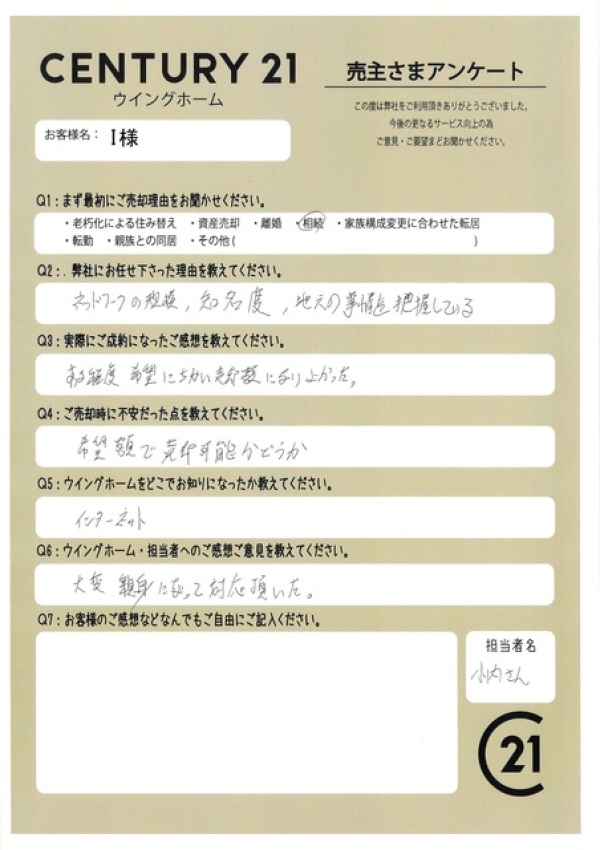 CENTURY 21
ウイングホーム
売主さまアンケート
この度は弊社をご利用頂きありがとうございました。
今後の更なるサービス向上の為
ご意見・ご要望までお聞かせください。
お客様名： I様
Q1：まず最初にご売却理由をお聞かせください。
・老朽化による住み替え ・資産売却 ・離婚 ・相続 ・家族構成変更に合わせた転居
・転勤 ・親族との同居 ・その他( )
Q2：. 弊社にお任せ下さった理由を教えてください。
ネットワークの規模, 知名度, 地元の事情を把握している
Q3：実際にご成約になったご感想を教えてください。
ある程度 希望にちかい売却額になりよかった。
Q4：ご売却時に不安だった点を教えてください。
希望額で売却可能かどうか
Q5：ウイングホームをどこでお知りになったか教えてください。
インターネット
Q6：ウイングホーム・担当者へのご感想ご意見を教えてください。
大変 親身になって対応頂いた。
Q7：お客様のご感想などなんでもご自由にご記入ください。
担当者名
小内さん
21